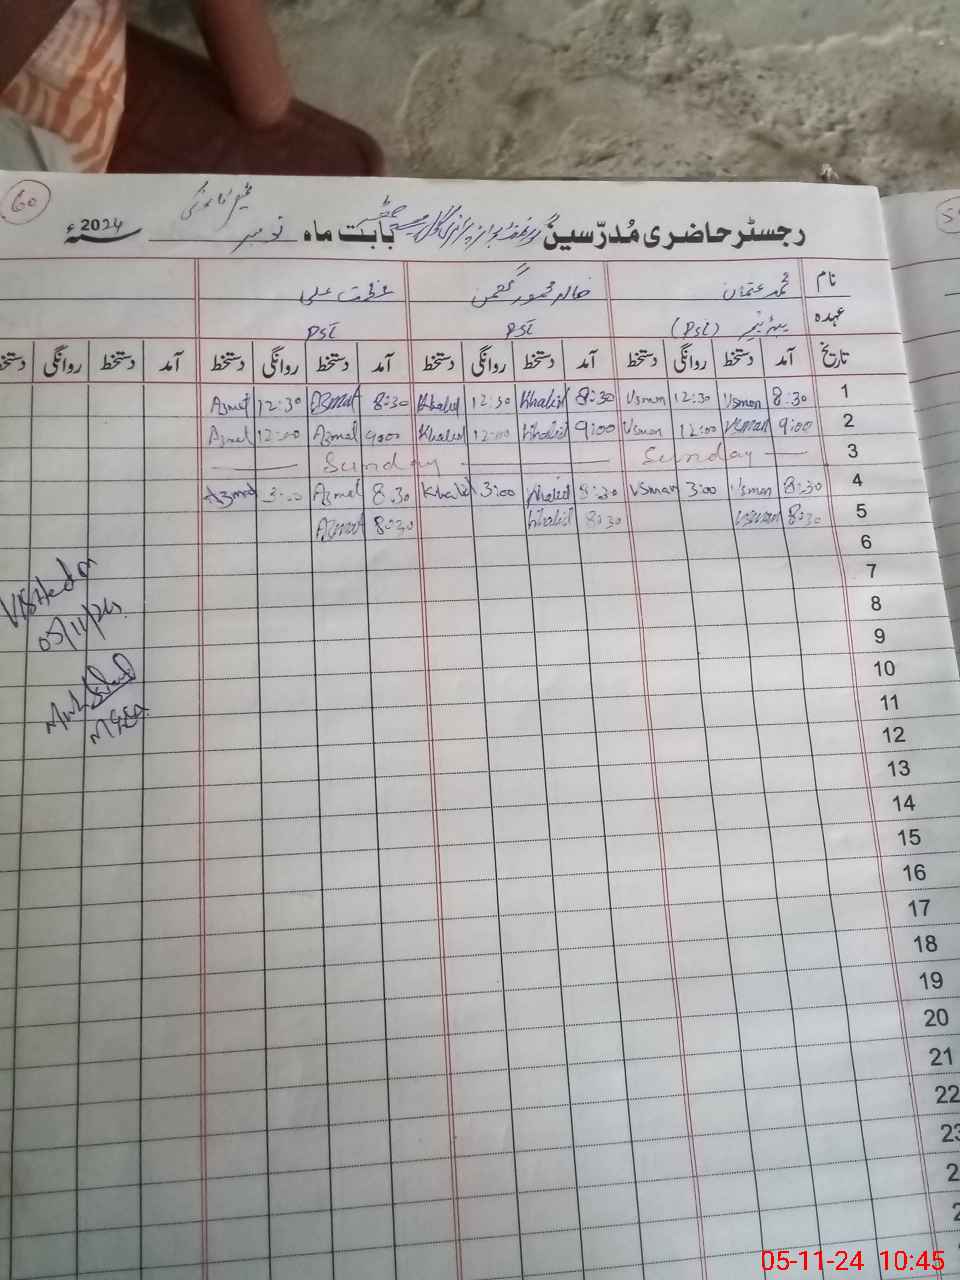 60
رجسٹر حاضری مُدرّسین گورنمنٹ بوائز پرائمری بابت ماہ نومبر 2024 سنہء
نام محمد عثمان خالد محمود گھمن عظمت علی
عہدہ (PST) PST PST
تاریخ آمد دستخط روانگی دستخط آمد دستخط روانگی دستخط آمد دستخط روانگی دستخط آمد دستخط روانگی دستخط
1 8:30 Usman 12:30 Usman 8:30 Khalid 12:30 Khalid 8:30 Azmat 12:30 Azmat
2 9:00 Usman 12:00 Usman 9:00 Khalid 12:00 Khalid 9:00 Azmat 12:00 Azmat
3 Sunday Sunday
4 8:30 Usman 3:00 Usman 8:30 Khalid 3:00 Khalid 8:30 Azmat 3:00 Azmat
5 8:30 Usman 8:30 Khalid 8:30 Azmat
6
7
8
9
10
11
12
13
14
15
16
17
18
19
20
21
22
23
Visited on
05/11/24
MEA
05-11-24 10:45